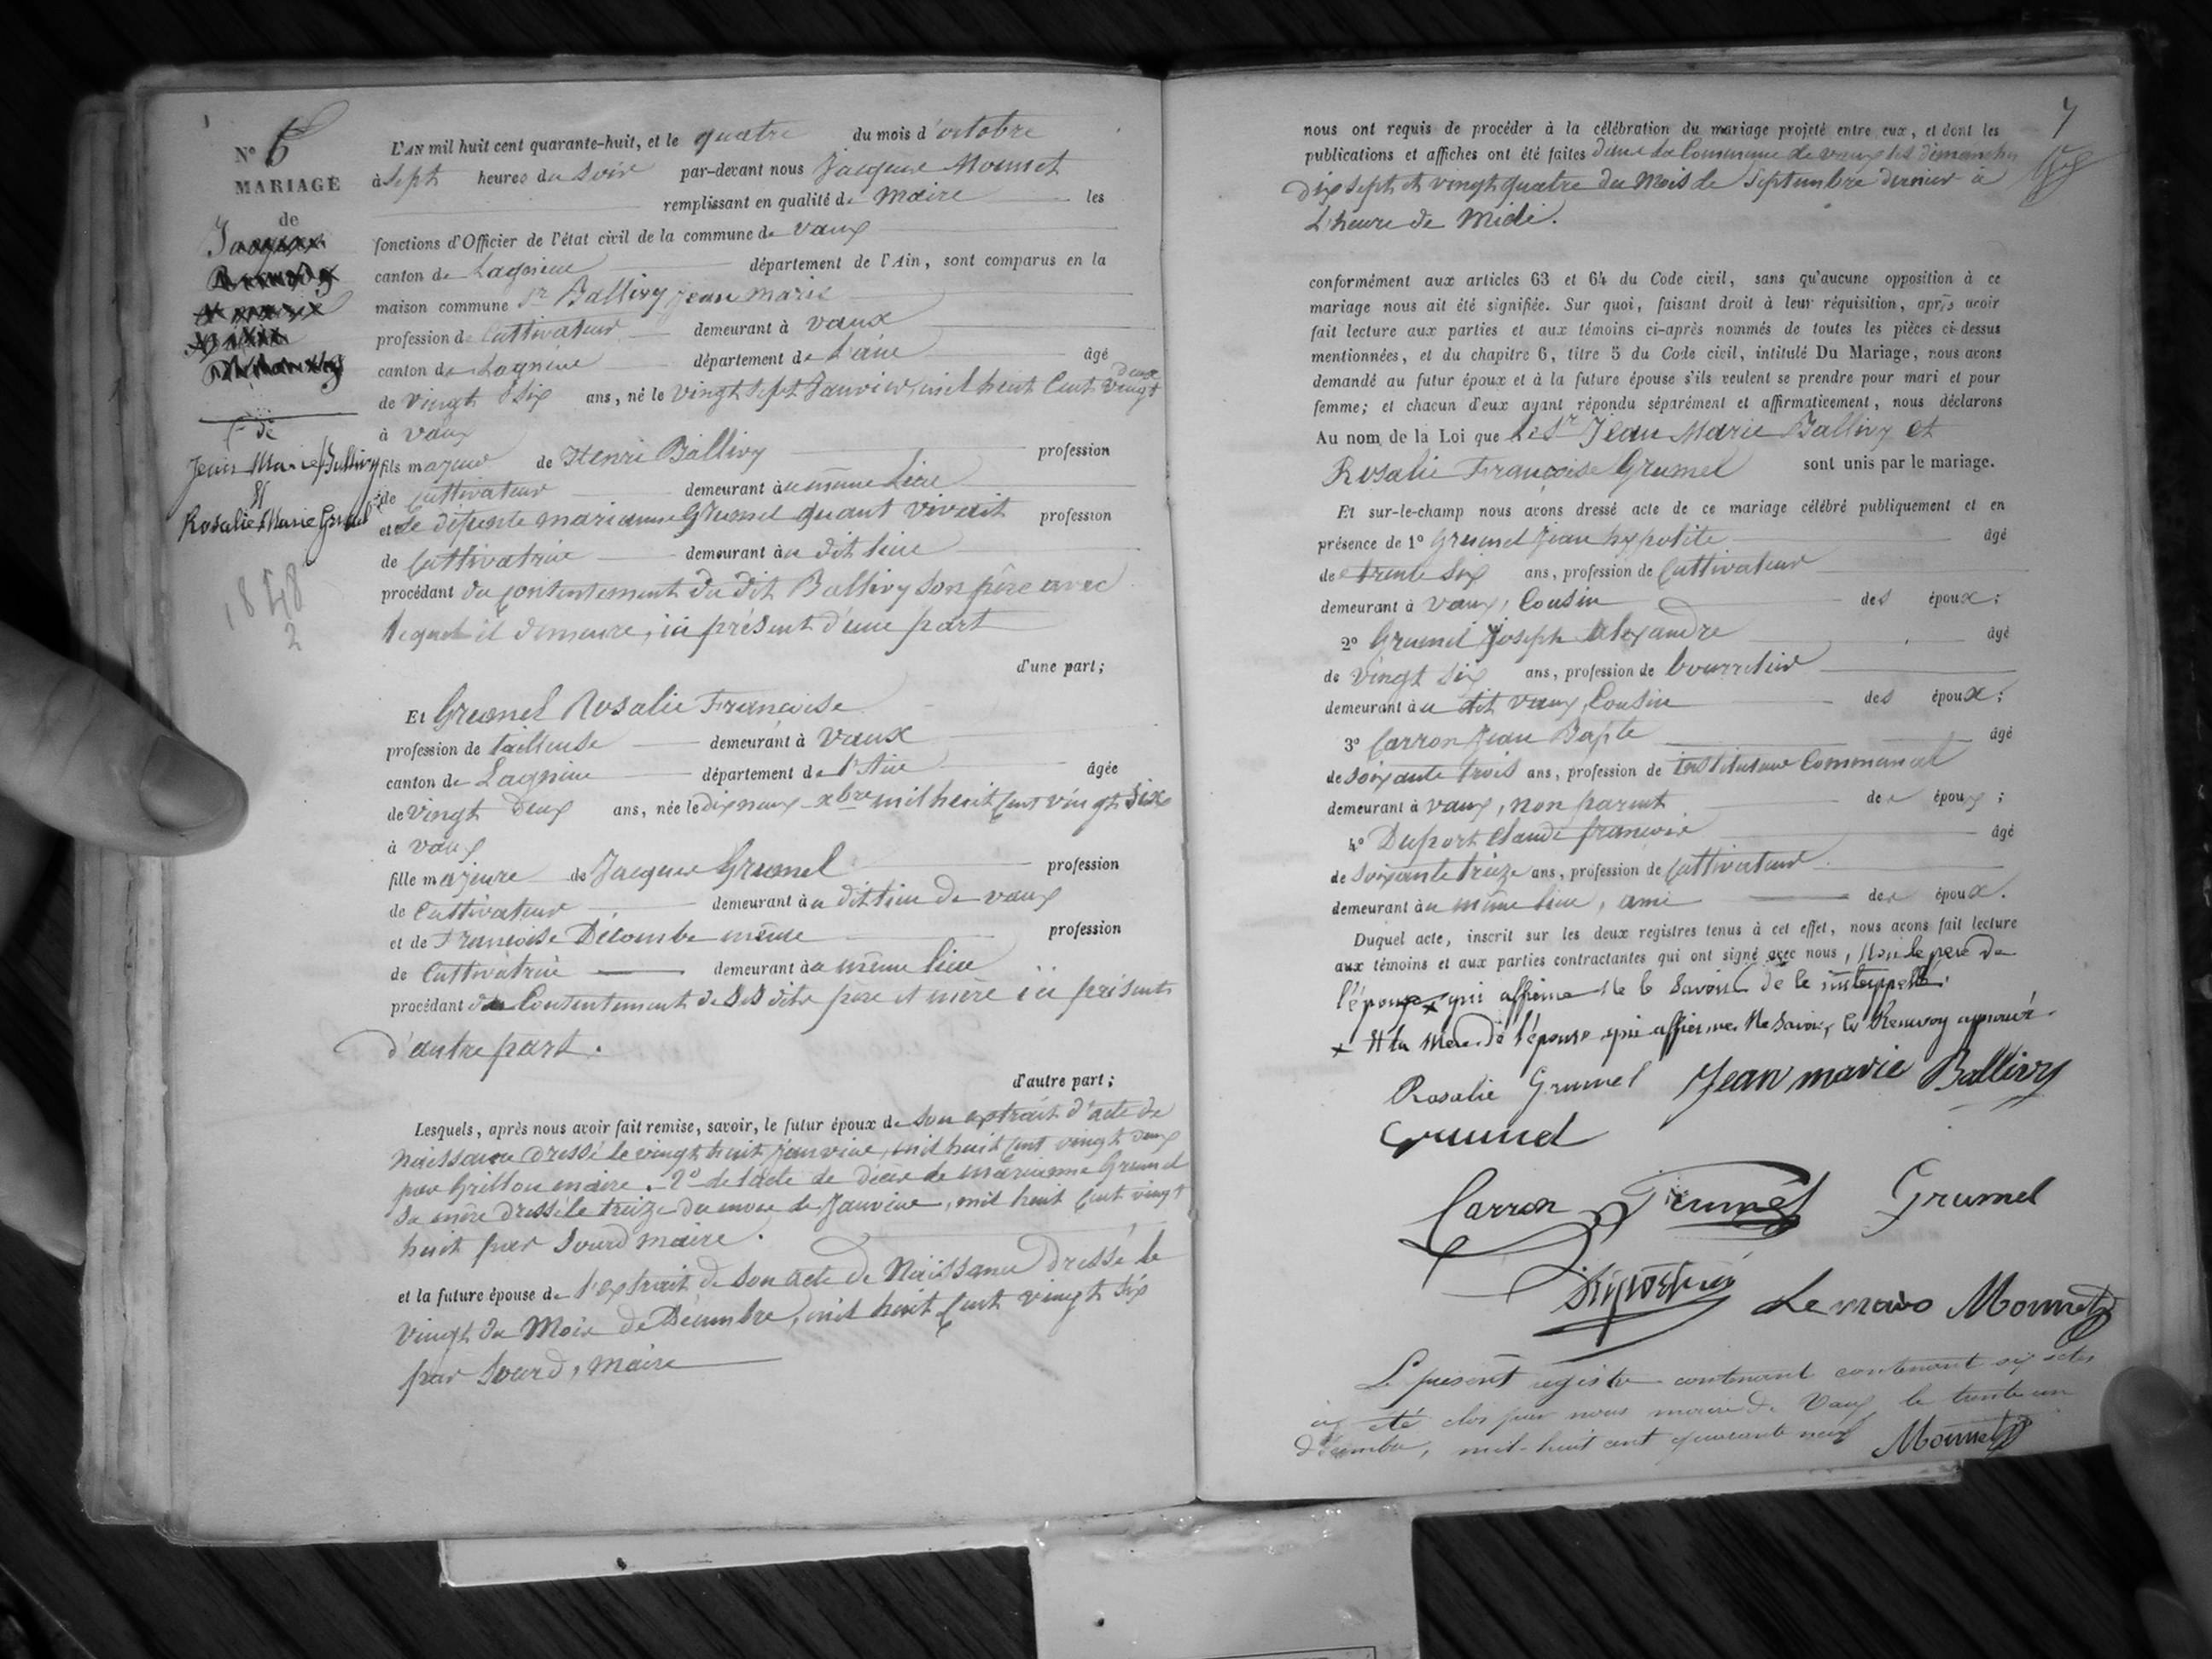 N° 6
MARIAGE
de
et de
Jean Marie Ballivy
et
Rosalie Marie Grumel
1848
2
L'AN mil huit cent quarante-huit, et le quatre du mois d'octobre
à sept heures du soir par-devant nous Jacques Monnet
remplissant en qualité de maire les
fonctions d'Officier de l'état civil de la commune de vaux
canton de Lagnieu département de l'Ain, sont comparus en la
maison commune Sr Ballivy jean marie
profession de Cultivateur demeurant à vaux
canton de Lagnieu département de L'ain âgé
de vingt six ans, né le vingt sept Janvier, mil huit Cent vingt deux
à vaux
fils majeur de Henri Ballivy profession
de Cultivateur demeurant au même Lieu
et de défunte marianne Grumel quant vivait profession
de Cultivatrice demeurant au dit lieu
procédant du consentement du dit Ballivy son père avec
lequel il demeure, ici présent d'une part
d'une part;
Et Grumel Rosalie Francoise
profession de tailleuse demeurant à vaux
canton de Lagnieu département de l'Ain âgée
de vingt deux ans, née le dix neuf xbre mil huit cent vingt six
à vaux
fille majeure de Jacques Grumel profession
de Cultivateur demeurant au dit lieu de vaux
et de Francoise Décombe mère profession
de Cultivatrice demeurant au même lieu
procédant du Consentement de ses dits père et mère ici présents
d'autre part.
d'autre part;
Lesquels, après nous avoir fait remise, savoir, le futur époux de son extrait d'acte de
Naissance dressé le vingt huit janvier, mil huit cent vingt deux
par Grillou maire. 2° de l'acte de décès de marianne Grumel
sa mère dressé le treize du mois de Janvier, mil huit cent vingt
huit par Sourd maire.
et la future épouse de l'extrait de son acte de Naissance dressé le
vingt du Mois de Décembre, mil huit cent vingt six
par Sourd, maire
7
nous ont requis de procéder à la célébration du mariage projeté entre eux, et dont les
publications et affiches ont été faites dans la Commune de vaux les dimanches
dix sept et vingt quatre du Mois de Septembre dernier à
L'heure de Midi.
conformément aux articles 63 et 64 du Code civil, sans qu'aucune opposition à ce
mariage nous ait été signifiée. Sur quoi, faisant droit à leur réquisition, après avoir
fait lecture aux parties et aux témoins ci-après nommés de toutes les pièces ci-dessus
mentionnées, et du chapitre 6, titre 5 du Code civil, intitulé Du Mariage, nous avons
demandé au futur époux et à la future épouse s'ils veulent se prendre pour mari et pour
femme; et chacun d'eux ayant répondu séparément et affirmativement, nous déclarons
Au nom de la Loi que le Sr Jean Marie Ballivy et
Rosalie Francoise Grumel sont unis par le mariage.
Et sur-le-champ nous avons dressé acte de ce mariage célébré publiquement et en
présence de 1° Grumel Jean hypolite âgé
de trente six ans, profession de Cultivateur
demeurant à vaux, Cousin des époux;
2° Grumel Joseph Alexandre âgé
de vingt six ans, profession de bourrelier
demeurant au dit vaux, Cousin des époux;
3° Carron Jean Bapte âgé
de soixante trois ans, profession de instituteur Communal
demeurant à vaux, non parent des époux;
4° Duport Claude francois âgé
de soixante treize ans, profession de Cultivateur
demeurant au même lieu, ami des époux.
Duquel acte, inscrit sur les deux registres tenus à cet effet, nous avons fait lecture
aux témoins et aux parties contractantes qui ont signé avec nous, Non le père de
l'époux x qui affirme Ne le Savoir de le interppellé.
x et la Mère de l'épouse qui affirme Ne Savoir, le Renvoy approuvé.
Rosalie Grumel Jean marie Ballivy
Grumel
Carron Grumel Grumel
Le maire Monnet
Le présent registre contenant contenant six actes
a été clos par nous maire de Vaux le trente un
décembre, mil-huit cent quarante neuf Monnet